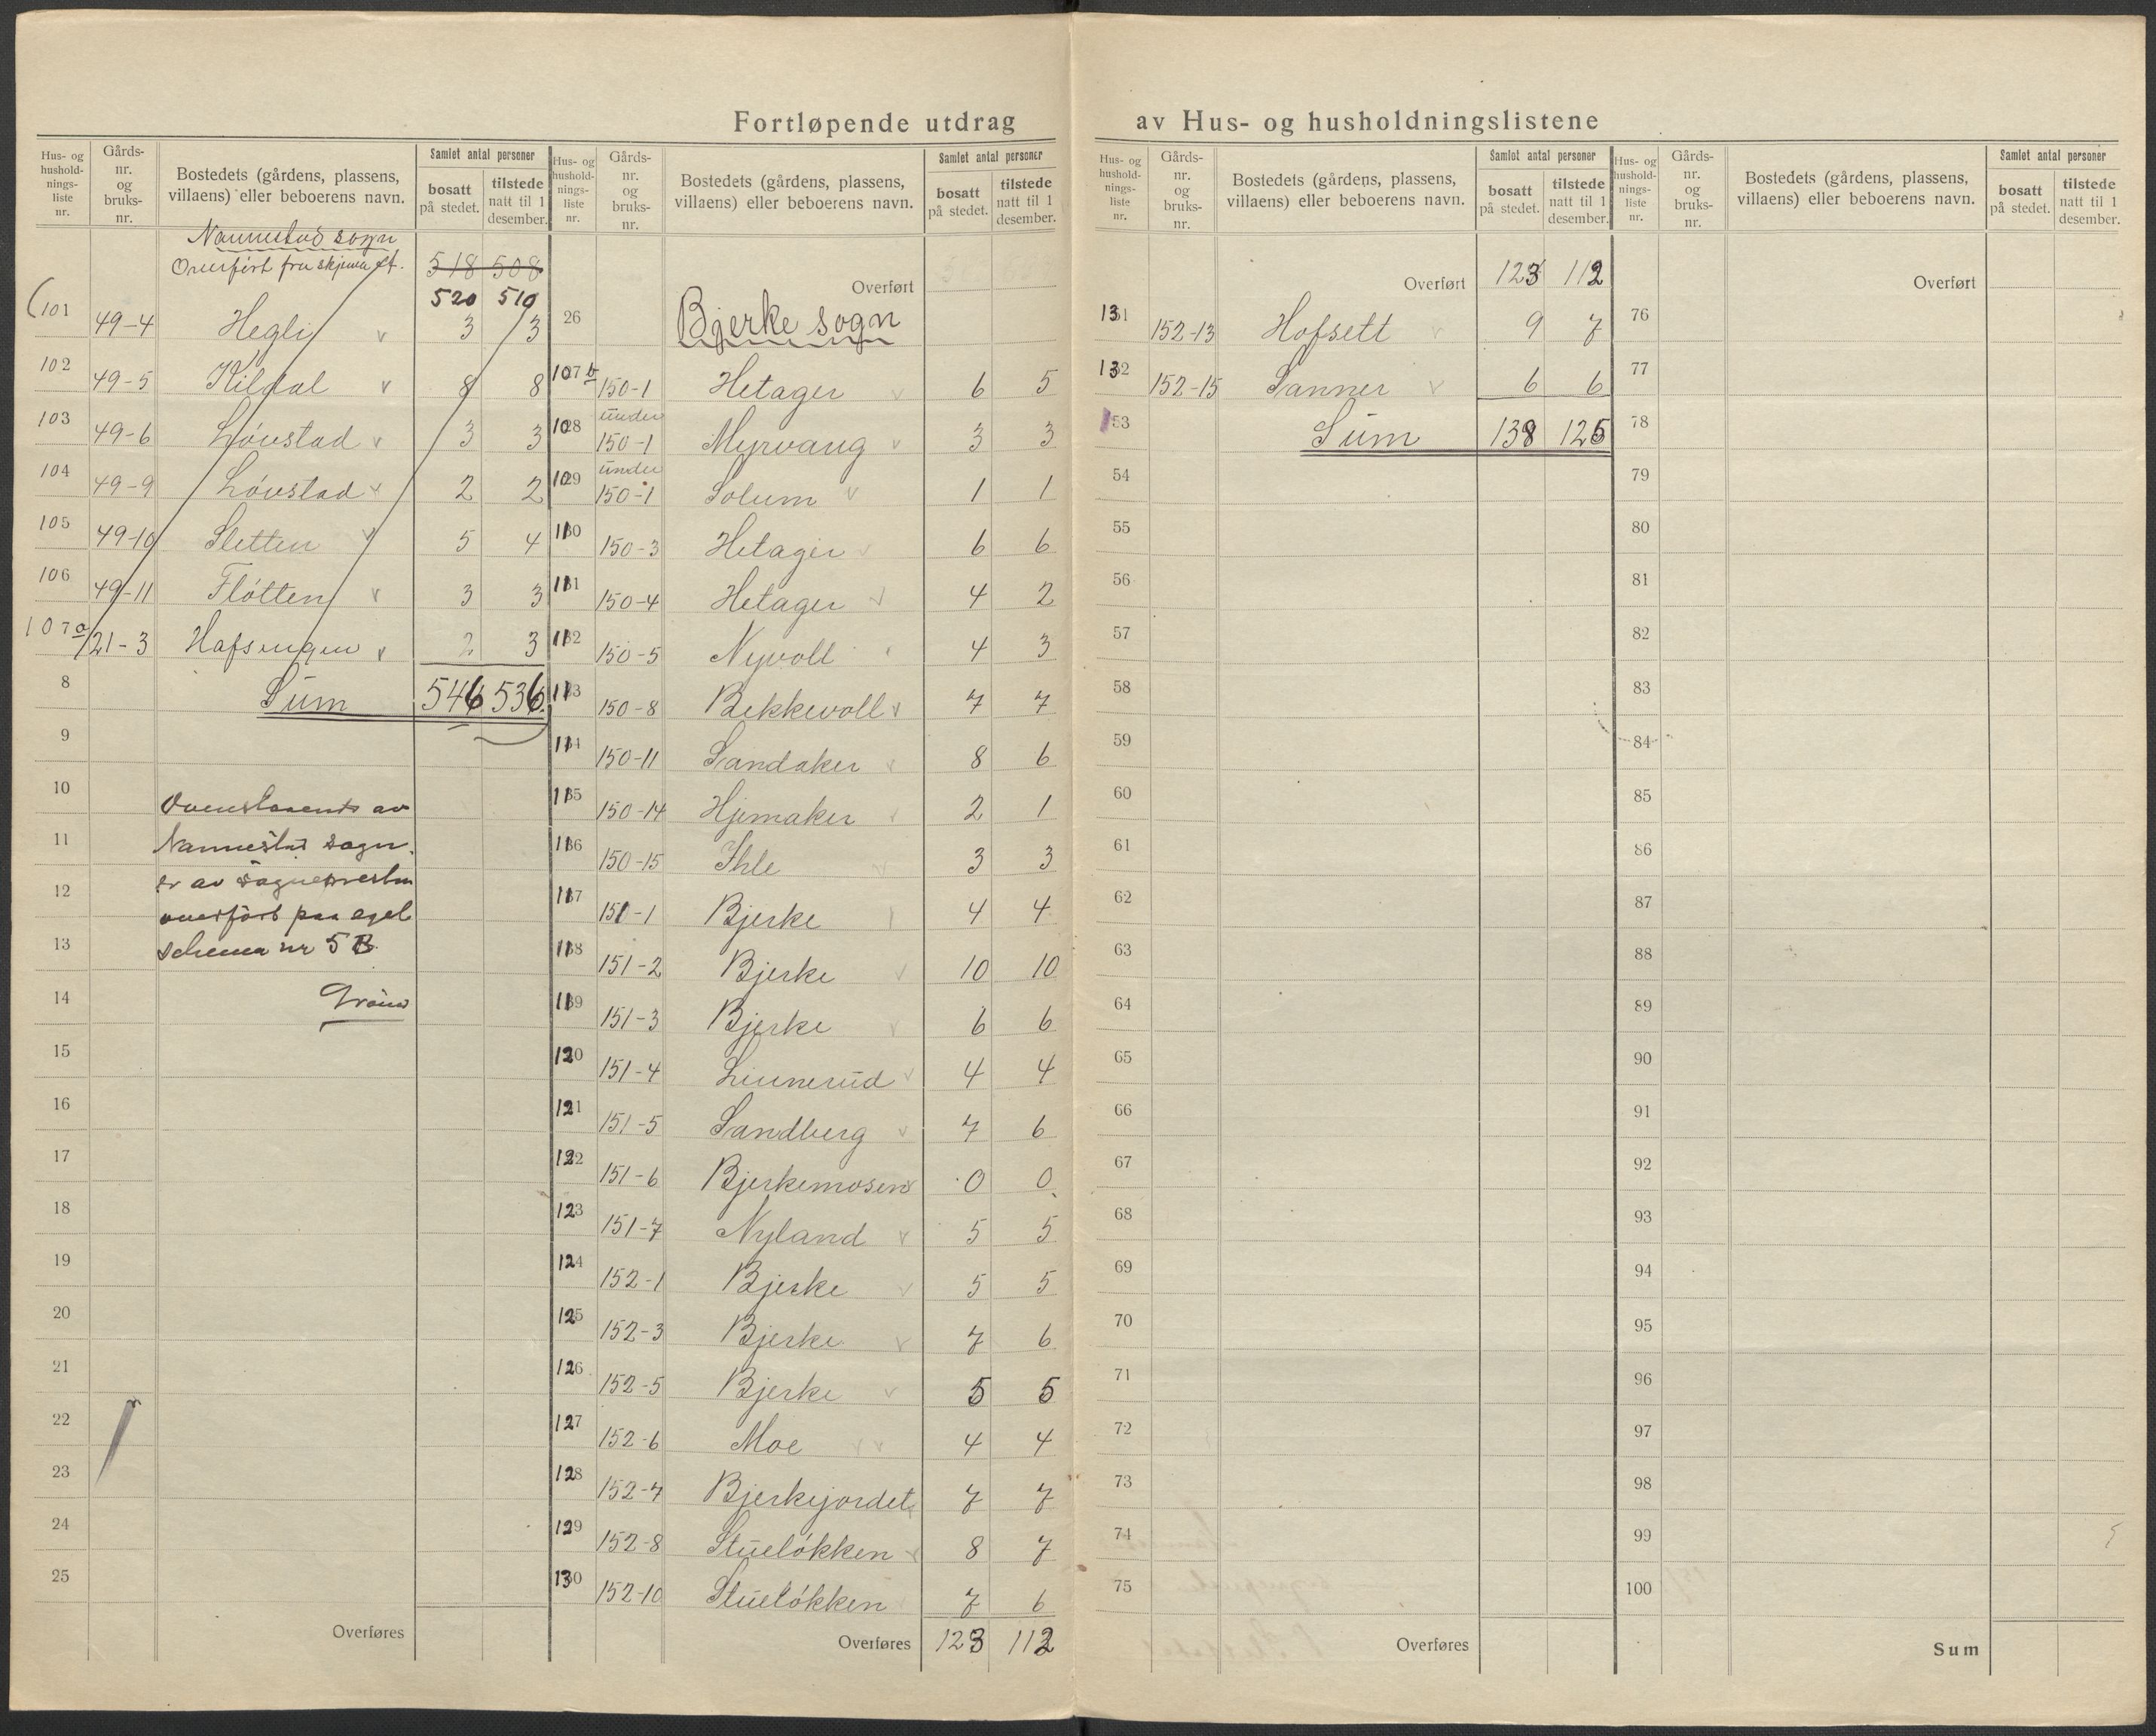 Fortløpende utdrag av Hus- og husholdningslistene
Hus- og hushold-nings-liste nr. Gårds-nr. og bruks-nr. Bostedets (gårdens, plassens, villaens) eller beboerens navn. Samlet antal personer bosatt på stedet. tilstede natt til 1 desember.
Nannestad sogn
Overført fra skjema
518 508
520 510
101 49-4 Hegli v 3 3
102 49-5 Kildal v 8 8
103 49-6 Lövstad v 3 3
104 49-9 Lövstad v 2 2
105 49-10 Sletten v 5 4
106 49-11 Flötten v 3 3
107a 121-3 Hafsengen v 2 3
8 Sum 546 536
9
10 Ovenstaaende av
11 Nannestad sogn
12 er av sognepresten
overført paa eget
13 schema nr 5 B.
14
15
16
17
18
19
20
21
22
23
24
25
Overføres
Hus- og hushold-nings-liste nr. Gårds-nr. og bruks-nr. Bostedets (gårdens, plassens, villaens) eller beboerens navn. Samlet antal personer bosatt på stedet. tilstede natt til 1 desember.
Overført
26 Bjerke sogn
107b 150-1 Hetager v 6 5
108 under 150-1 Myrvang v 3 3
109 under 150-1 Solum v 1 1
110 150-3 Hetager v 6 6
111 150-4 Hetager v 4 2
112 150-5 Nyvoll 4 3
113 150-8 Bekkevoll v 7 7
114 150-11 Sandaker v 8 6
115 150-14 Hjemaker v 2 1
116 150-15 Ihle v 3 3
117 151-1 Bjerke 4 4
118 151-2 Bjerke v 10 10
119 151-3 Bjerke v 6 6
120 151-4 Linnerud v 4 4
121 151-5 Sandberg v 7 6
122 151-6 Bjerkemosen 0 0
123 151-7 Nyland v 5 5
124 152-1 Bjerke v 5 5
125 152-3 Bjerke v 7 6
126 152-5 Bjerke v 5 5
127 152-6 Moe v v 4 4
128 152-7 Bjerkejordet 7 7
129 152-8 Stuelökken v 8 7
130 152-10 Stuelökken 7 6
Overføres 123 112
Hus- og hushold-nings-liste nr. Gårds-nr. og bruks-nr. Bostedets (gårdens, plassens, villaens) eller beboerens navn. Samlet antal personer bosatt på stedet. tilstede natt til 1 desember.
Overført 123 112
131 152-13 Hofsett v 9 7
132 152-15 Sanner v 6 6
53 Sum 138 125
54
55
56
57
58
59
60
61
62
63
64
65
66
67
68
69
70
71
72
73
74
75
Overføres
Hus- og hushold-nings-liste nr. Gårds-nr. og bruks-nr. Bostedets (gårdens, plassens, villaens) eller beboerens navn. Samlet antal personer bosatt på stedet. tilstede natt til 1 desember.
Overført
76
77
78
79
80
81
82
83
84
85
86
87
88
89
90
91
92
93
94
95
96
97
98
99
100
Sum